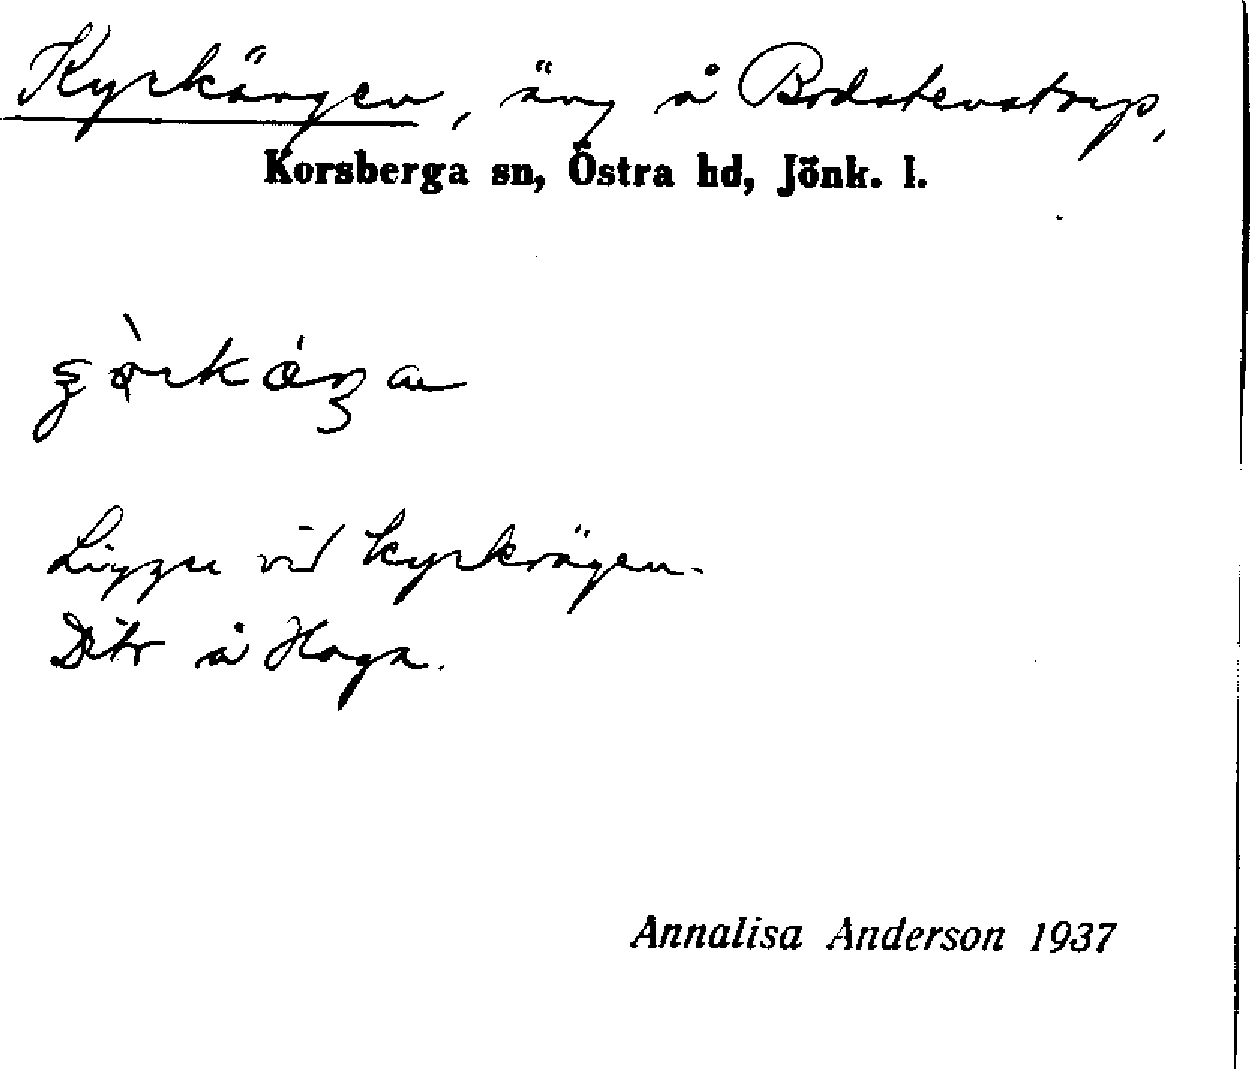 Kyrkängen, äng å Bodstenstorp,
Korsberga sn, Östra hd, Jönk. l.
Ligger vid kyrkvägen.
Ditr å Haga.
Annalisa Anderson 1937